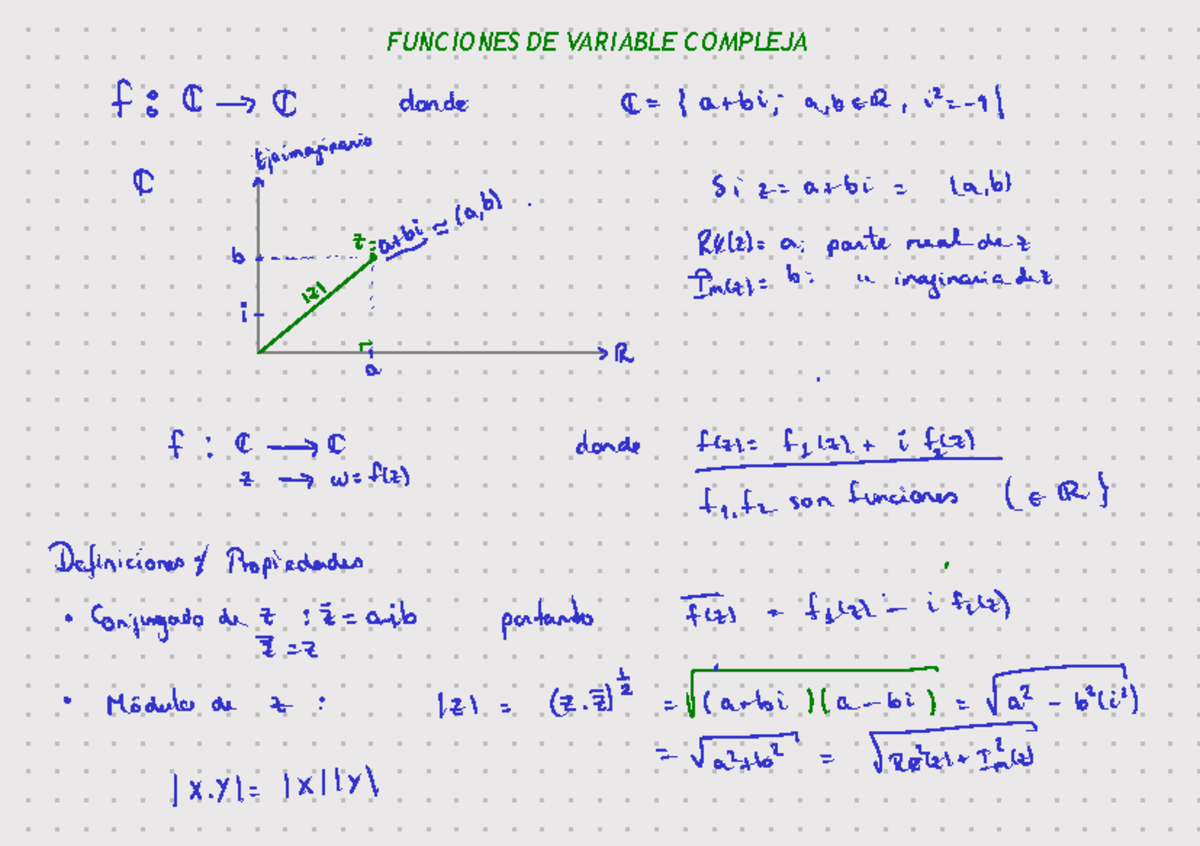 FUNCIONES DE VARIABLE COMPLEJA
f : ℂ → ℂ donde ℂ = { a+bi; a,b ∈ ℝ, i² = -1 }
Eje imaginario
ℂ
Si z = a+bi = (a,b)
z = a+bi ≃ (a,b)
Re(z) = a: parte real de z
b
Im(z) = b: " imaginaria de z
|z|
i
ℝ
a
f : ℂ → ℂ donde f(z) = f₁(z) + i f₂(z)
z → w = f(z)
f₁, f₂ son funciones (∈ ℝ)
Definiciones y Propiedades
• Conjugado de z : z̅ = a-ib portando \overline{f(z)} = f₁(z) - i f₂(z)
z̿ = z
• Módulo de z : |z| = (z·z̅)^{1/2} = √((a+bi)(a-bi)) = √(a² - b²(i²))
= √(a²+b²) = √(Re²(z) + Im²(z))
|x.y| = |x||y|